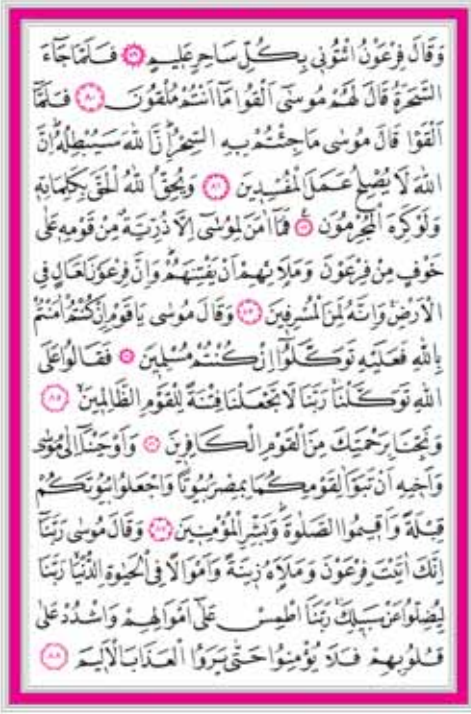 وَقَالَ فِرْعَوْنُ ائْتُونِي بِكُلِّ سَاحِرٍ عَلِيمٍ ﴿٧٩﴾ فَلَمَّا جَاءَ
السَّحَرَةُ قَالَ لَهُمْ مُوسَى أَلْقُوا مَا أَنْتُمْ مُلْقُونَ ﴿٨٠﴾ فَلَمَّا
أَلْقَوْا قَالَ مُوسَى مَا جِئْتُمْ بِهِ السِّحْرُ إِنَّ اللهَ سَيُبْطِلُهُ إِنَّ
اللهَ لَا يُصْلِحُ عَمَلَ الْمُفْسِدِينَ ﴿٨١﴾ وَيُحِقُّ اللهُ الْحَقَّ بِكَلِمَاتِهِ
وَلَوْ كَرِهَ الْمُجْرِمُونَ ﴿٨٢﴾ فَمَا آمَنَ لِمُوسَى إِلَّا ذُرِّيَّةٌ مِنْ قَوْمِهِ عَلَى
خَوْفٍ مِنْ فِرْعَوْنَ وَمَلَائِهِمْ أَنْ يَفْتِنَهُمْ وَإِنَّ فِرْعَوْنَ لَعَالٍ فِي
الْأَرْضِ وَإِنَّهُ لَمِنَ الْمُسْرِفِينَ ﴿٨٣﴾ وَقَالَ مُوسَى يَا قَوْمِ إِنْ كُنْتُمْ آمَنْتُمْ
بِاللهِ فَعَلَيْهِ تَوَكَّلُوا إِنْ كُنْتُمْ مُسْلِمِينَ ﴿٨٤﴾ فَقَالُوا عَلَى
اللهِ تَوَكَّلْنَا رَبَّنَا لَا تَجْعَلْنَا فِتْنَةً لِلْقَوْمِ الظَّالِمِينَ ﴿٨٥﴾
وَنَجِّنَا بِرَحْمَتِكَ مِنَ الْقَوْمِ الْكَافِرِينَ ﴿٨٦﴾ وَأَوْحَيْنَا إِلَى مُوسَى
وَأَخِيهِ أَنْ تَبَوَّآ لِقَوْمِكُمَا بِمِصْرَ بُيُوتًا وَاجْعَلُوا بُيُوتَكُمْ
قِبْلَةً وَأَقِيمُوا الصَّلٰوةَ وَبَشِّرِ الْمُؤْمِنِينَ ﴿٨٧﴾ وَقَالَ مُوسَى رَبَّنَا
إِنَّكَ آتَيْتَ فِرْعَوْنَ وَمَلَأَهُ زِينَةً وَأَمْوَالًا فِي الْحَيٰوةِ الدُّنْيَا رَبَّنَا
لِيُضِلُّوا عَنْ سَبِيلِكَ رَبَّنَا اطْمِسْ عَلَى أَمْوَالِهِمْ وَاشْدُدْ عَلَى
قُلُوبِهِمْ فَلَا يُؤْمِنُوا حَتَّى يَرَوُا الْعَذَابَ الْأَلِيمَ ﴿٨٨﴾